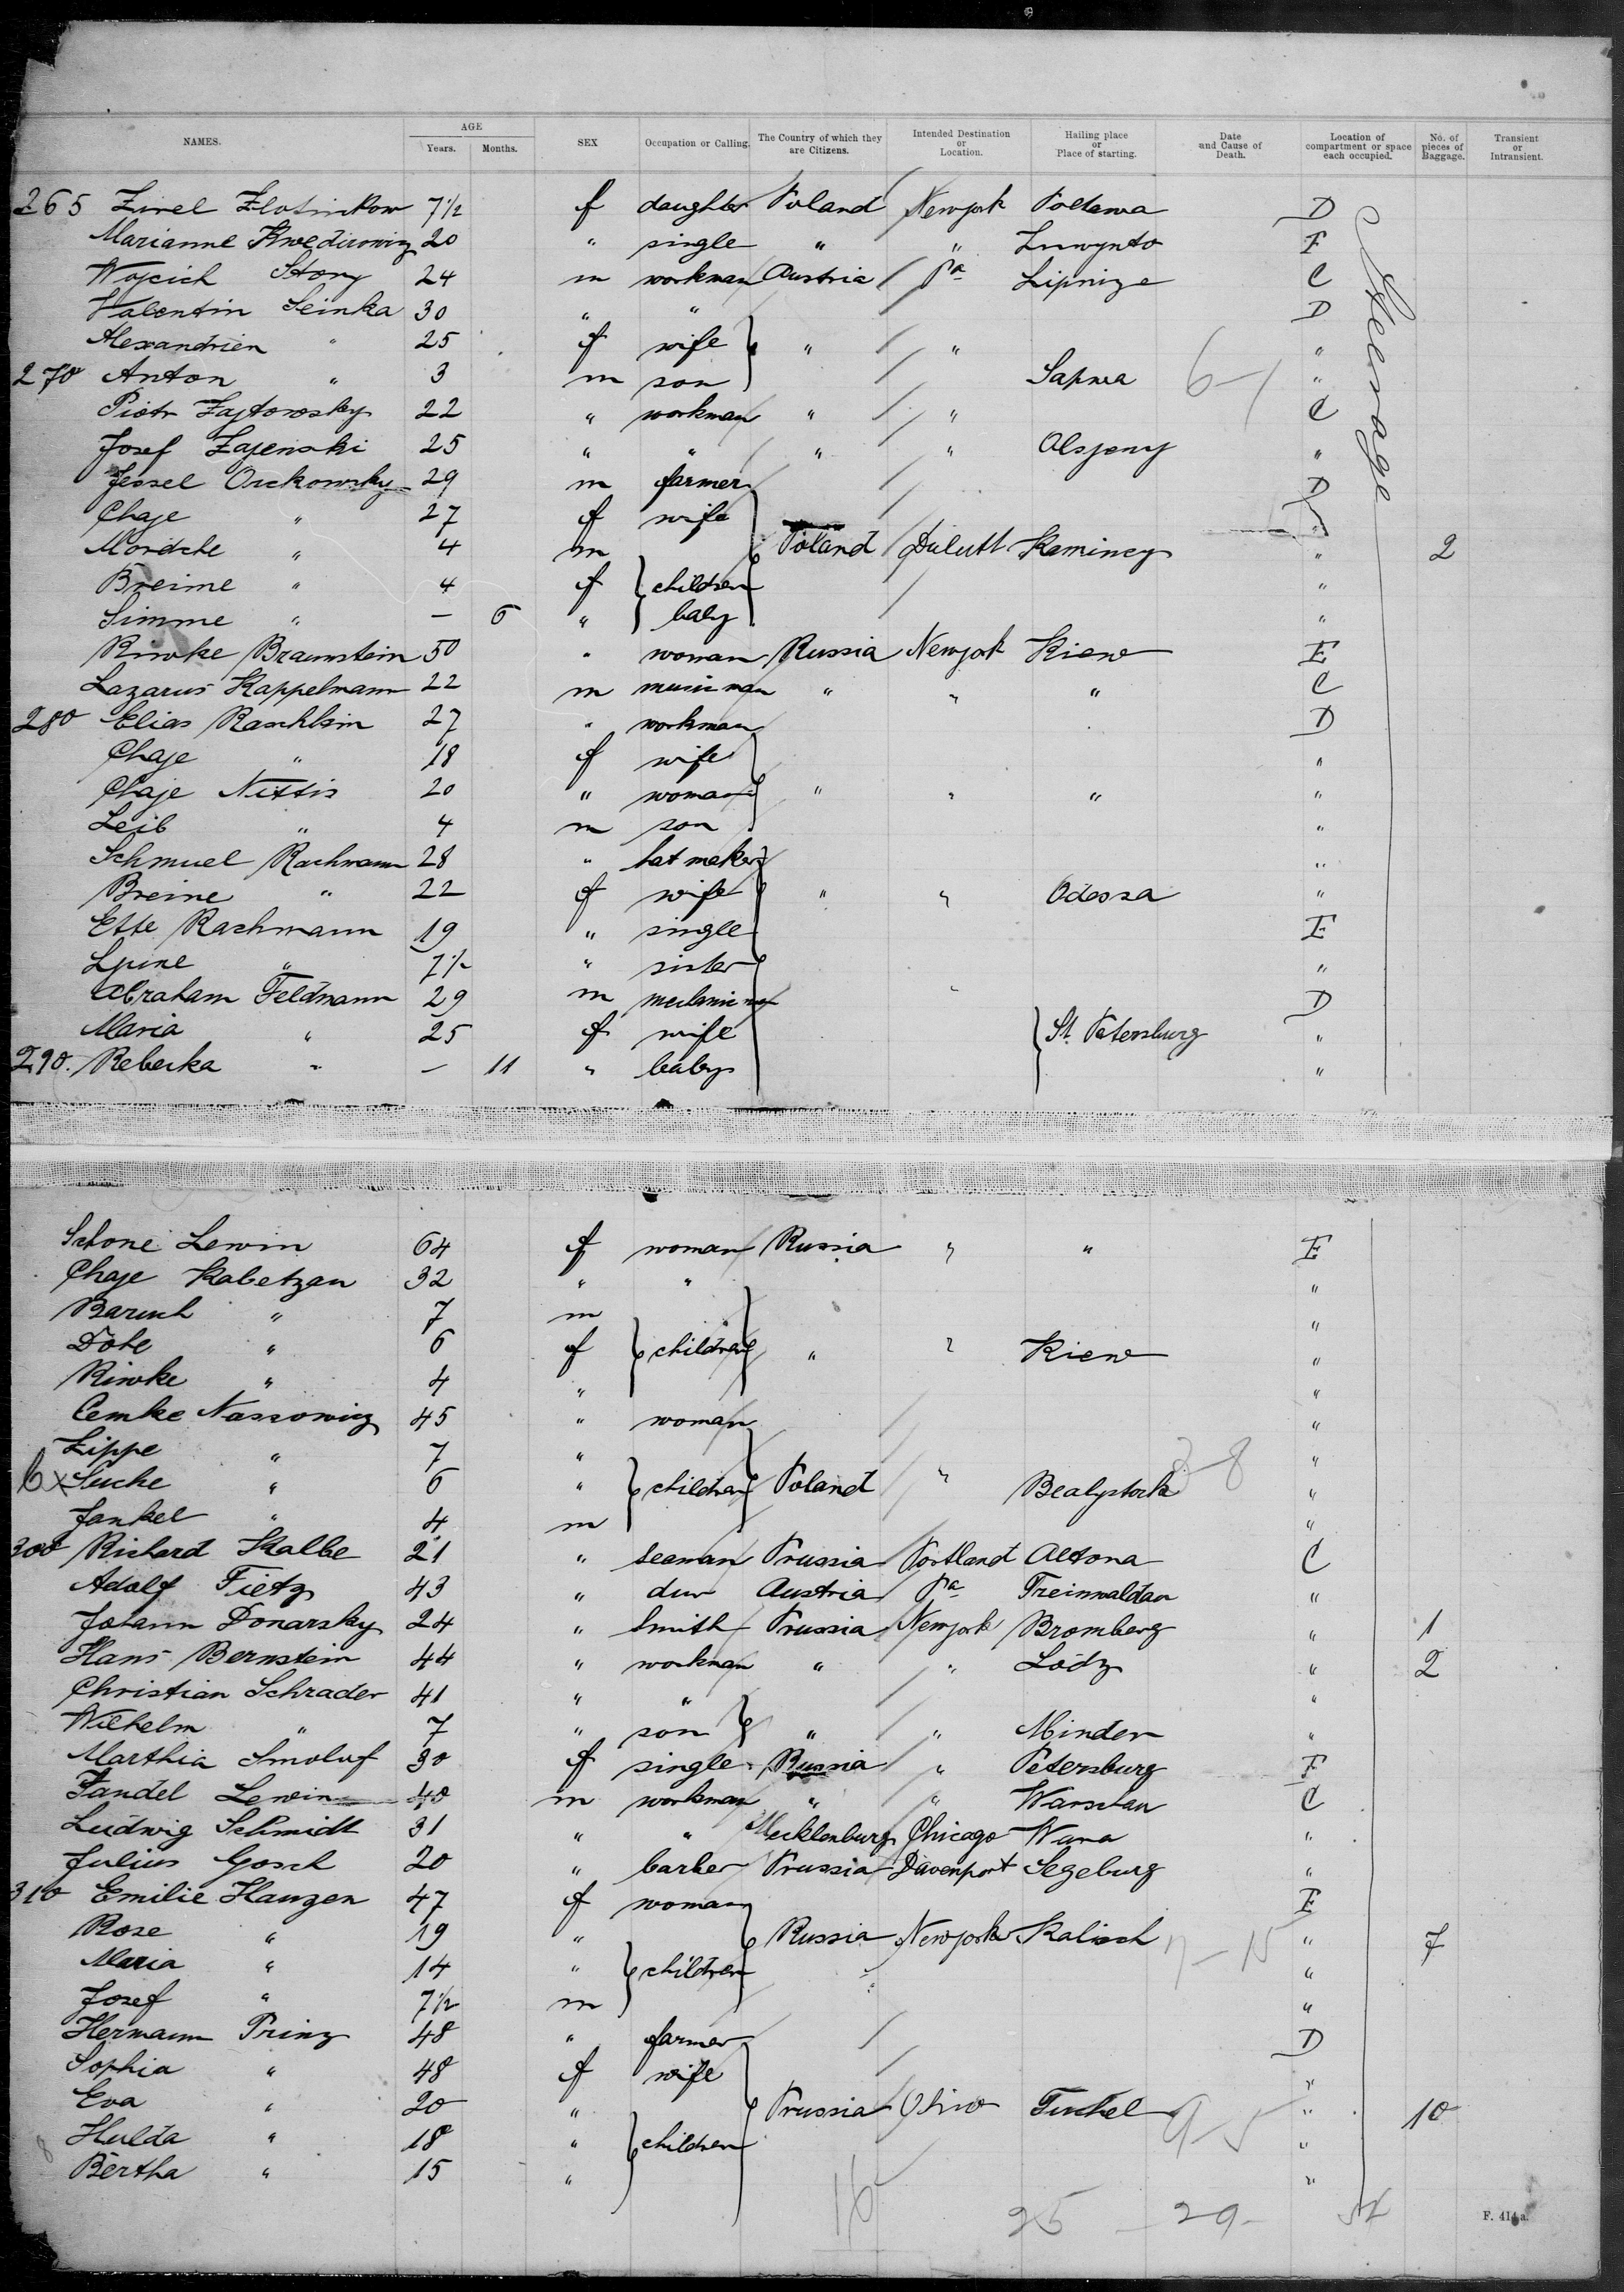 NAMES. AGE Years. Months. SEX Occupation or Calling. The Country of which they are Citizens. Intended Destination or Location. Hailing place or Place of starting. Date and Cause of Death. Location of compartment or space each occupied. No. of pieces of Baggage. Transient or Intransient.
265 Zirel Zlotinkow 7½ f daughter Poland Newyork Poltawa D Steerage
Marianne 20 " single " " E
Wojcich Stony 24 m workman Austria Pa Lipnize C
Valentin Seinka 30 " " D
Alexandrien " 25 f wife } " " "
270 Anton " 3 m son Sapwa 6-1 "
Piotr Zajtowsky 22 " workman " " C
Josef Zajenski 25 " " " " Olsjeny "
Jessel Orckowsky 29 m farmer D
Chaje " 27 f wife "
Mordche " 4 m Poland Duluth Kaminey " 2
Breime " 4 f } children "
Simme " — 6 " baby "
Riwke Braunstein 50 " woman Russia Newyork Kiew E
Lazarus Kappelmann 22 m " " " C
280 Elias Raschkin 27 " workman D
Chaje " 18 f wife "
Chaje Nettis 20 " woman " " " "
Leib " 4 m son "
Schmuel Rachmann 28 " hat maker "
Breine " 22 f wife " " Odessa "
Ette Rachmann 19 " single E
" 7½ " sister "
Abraham Feldmann 29 m " D
Maria " 25 f wife } St. Petersburg "
290. Rebecka " — 11 " baby "
Schone Lewin 64 f woman Russia " " E
Chaje Kabetzan 32 " " "
Baruch " 7 m "
Dobe " 6 f } children } " " Kiew "
Riwke " 4 " "
Cemke Nassowicz 45 " woman "
Lippe " 7 " "
x Suche " 6 " } children } Poland " Bealystock 3-8 "
Jankel " 4 m "
300 Richard Kalbe 21 " seaman Prussia Portland Altona C
Adolf Fietz 43 " Austria Pa Freinwaldau "
Johann Donarsky 24 " Smith Prussia Newyork Bromberg " 1
Hans Bernstein 44 " workman " " Lodz " 2
Christian Schrader 41 " " "
Wilhelm " 7 " son } " " Minden "
Marthia Smoluf 30 f single Russia " Petersburg E
Fandel Lewin 40 m workman " " Warschau C
Ludwig Schmidt 31 " " Mecklenburg Chicago Wana "
Julius Gosch 20 " barber Prussia Davenport Segeburg "
310 Emilie Hanzen 47 f woman E
Rose " 19 " } Russia Newyork Kalisch 7-15 " 7
Maria " 14 " } children "
Josef " 7½ m "
Hermann Prinz 48 " farmer D
Sophia " 48 f wife "
Eva " 20 " } Prussia Ohio Tuchel 9-5 " 10
Hulda " 18 " } children "
Bertha " 15 " "
16 25 - 29 -
F. 414a.